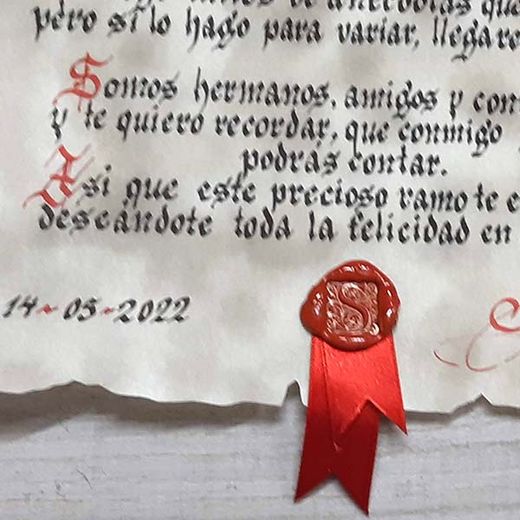 de anécdotas que
pero si lo hago para variar, llegaré
Somos hermanos, amigos y com
y te quiero recordar, que conmigo
podrás contar.
Asi que este precioso ramo te e
deseándote toda la felicidad en
14-05-2022
S